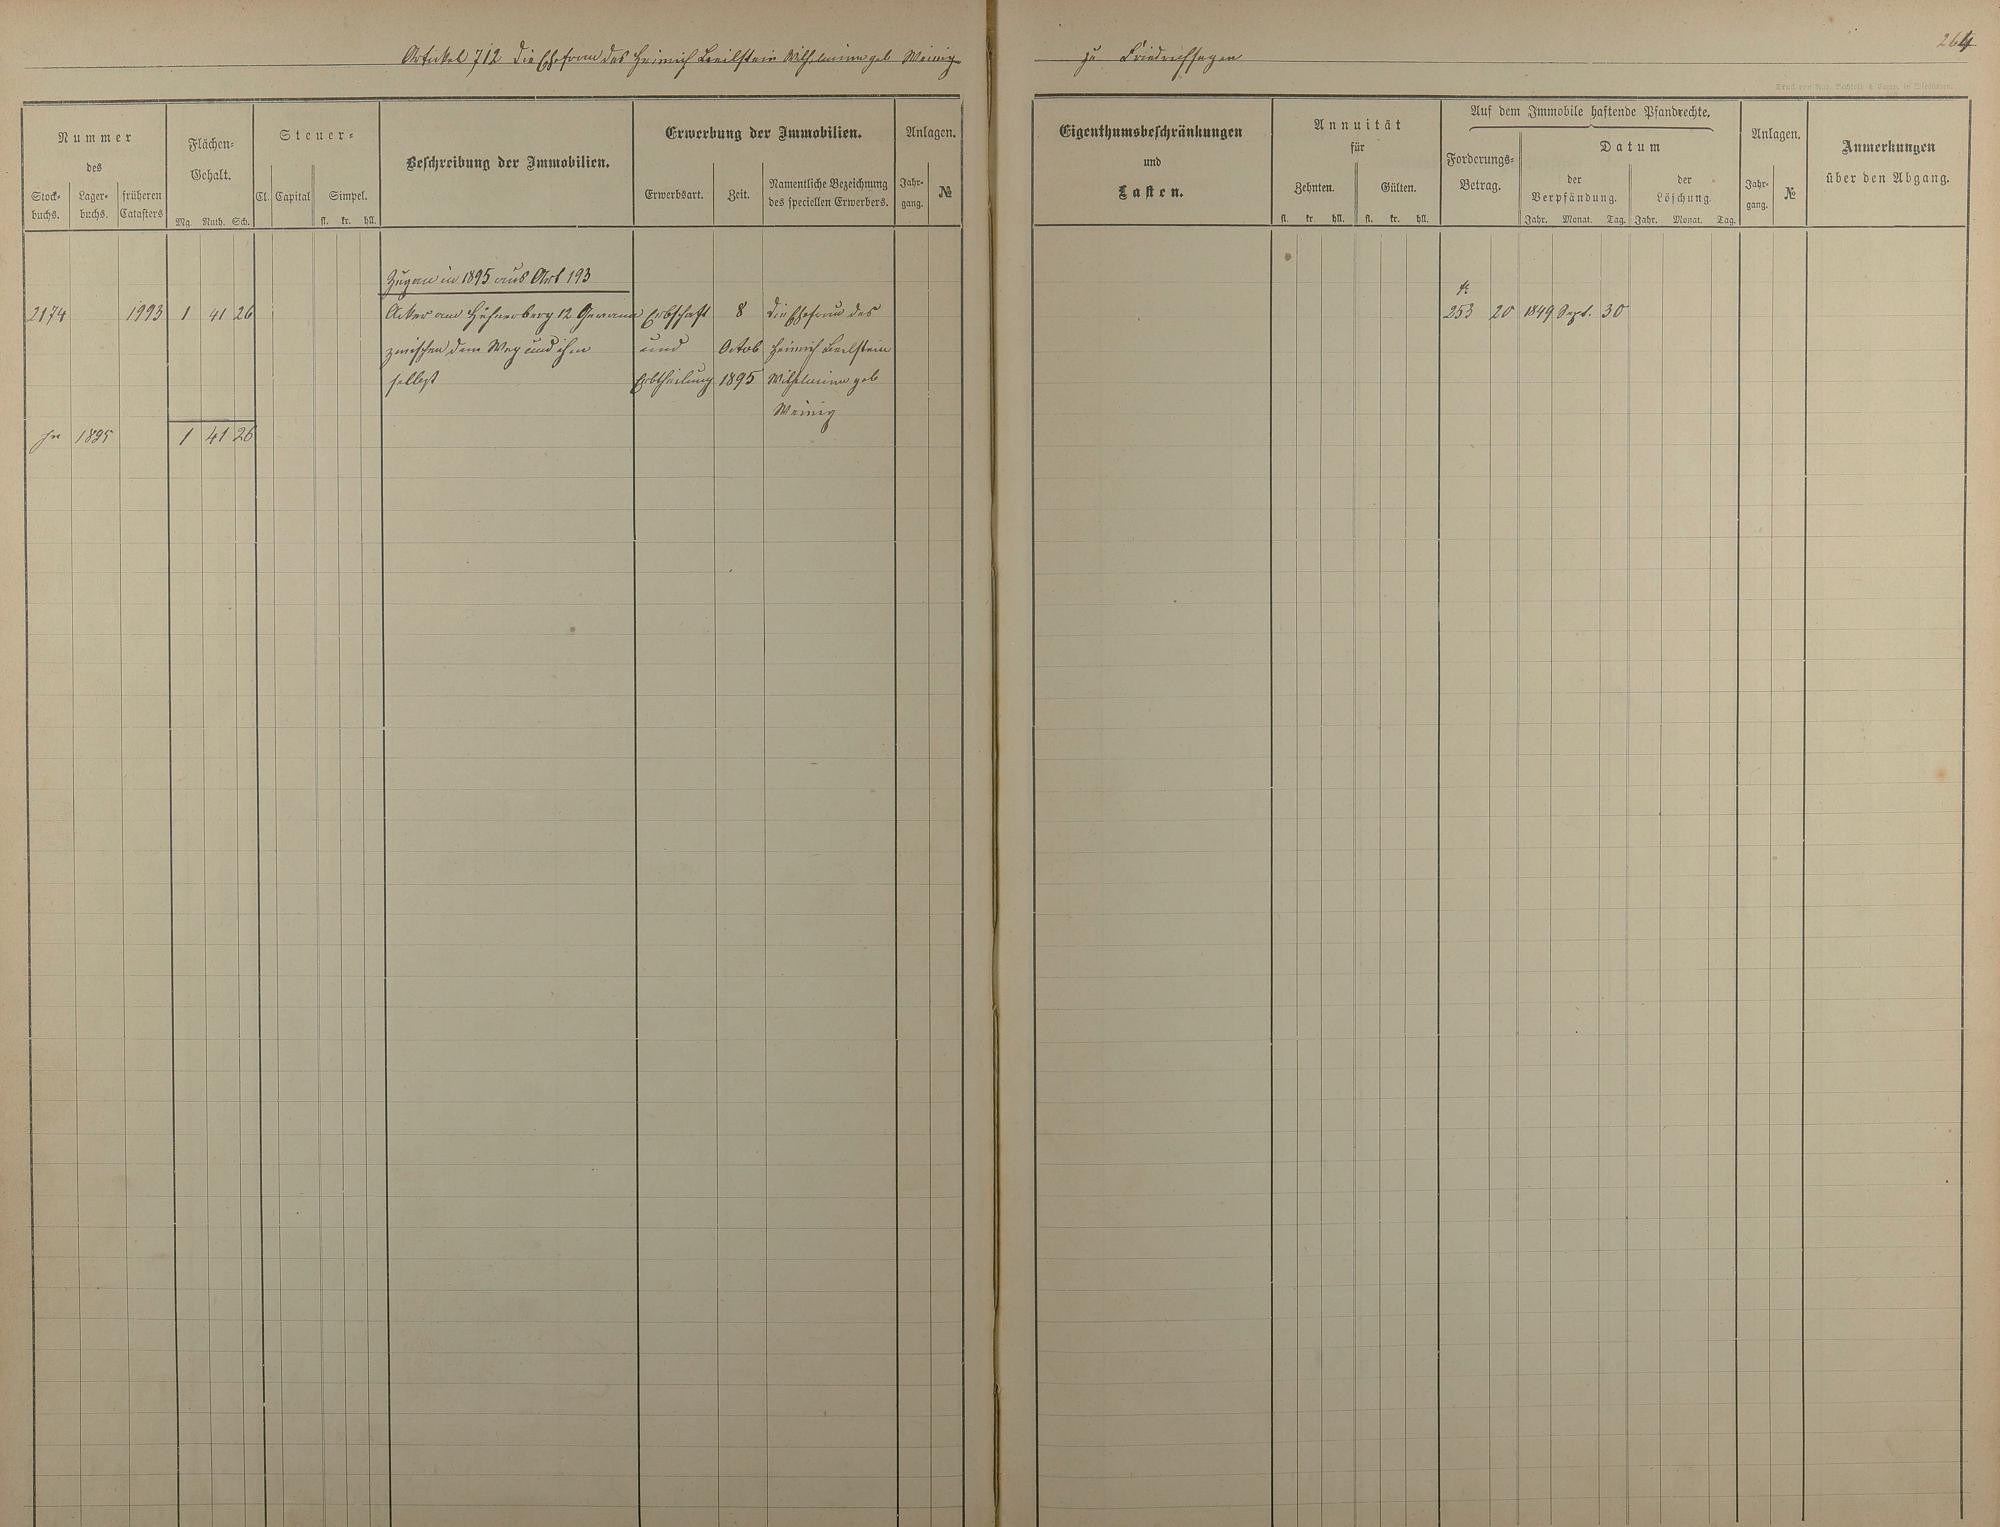 Artikel 712 die Ehefrau des Heinrich Beilstein Wilhelmine geb Weinig
zu Friedrichsegen
264
Nummer
des
Stock-
buchs.
Lager-
buchs.
früheren
Catasters
Flächen-
Gehalt.
Mg. Ruth. Sch.
Steuer-
Cl. Capital Simpel.
fl. kr. hll.
Beschreibung der Immobilien.
Erwerbung der Immobilien.
Erwerbsart. Zeit.
Namentliche Bezeichnung
des speciellen Erwerbers.
Anlagen.
Jahr-
gang.
№
Eigenthumsbeschränkungen
und
Lasten.
Annuität
für
Zehnten. Gülten.
fl. kr. hll. fl. kr. hll.
Auf dem Immobile haftende Pfandrechte.
Forderungs-
Betrag.
Datum
der
Verpfändung.
Jahr. Monat. Tag.
der
Löschung.
Jahr. Monat. Tag.
Anlagen.
Jahr-
gang.
№
Anmerkungen
über den Abgang.
in 1895 aus Art 193
2174 1993 1 41 26 Acker am Hühnerberg 12 Gewann Erbschaft 8 die Ehefrau des 253 20 1849 Sept. 30
zwischen dem Weg und ihm und Octob Heinrich Beilstein
selbst Erbtheilung 1895 Wilhelmine geb
Weinig
In 1895 1 41 26